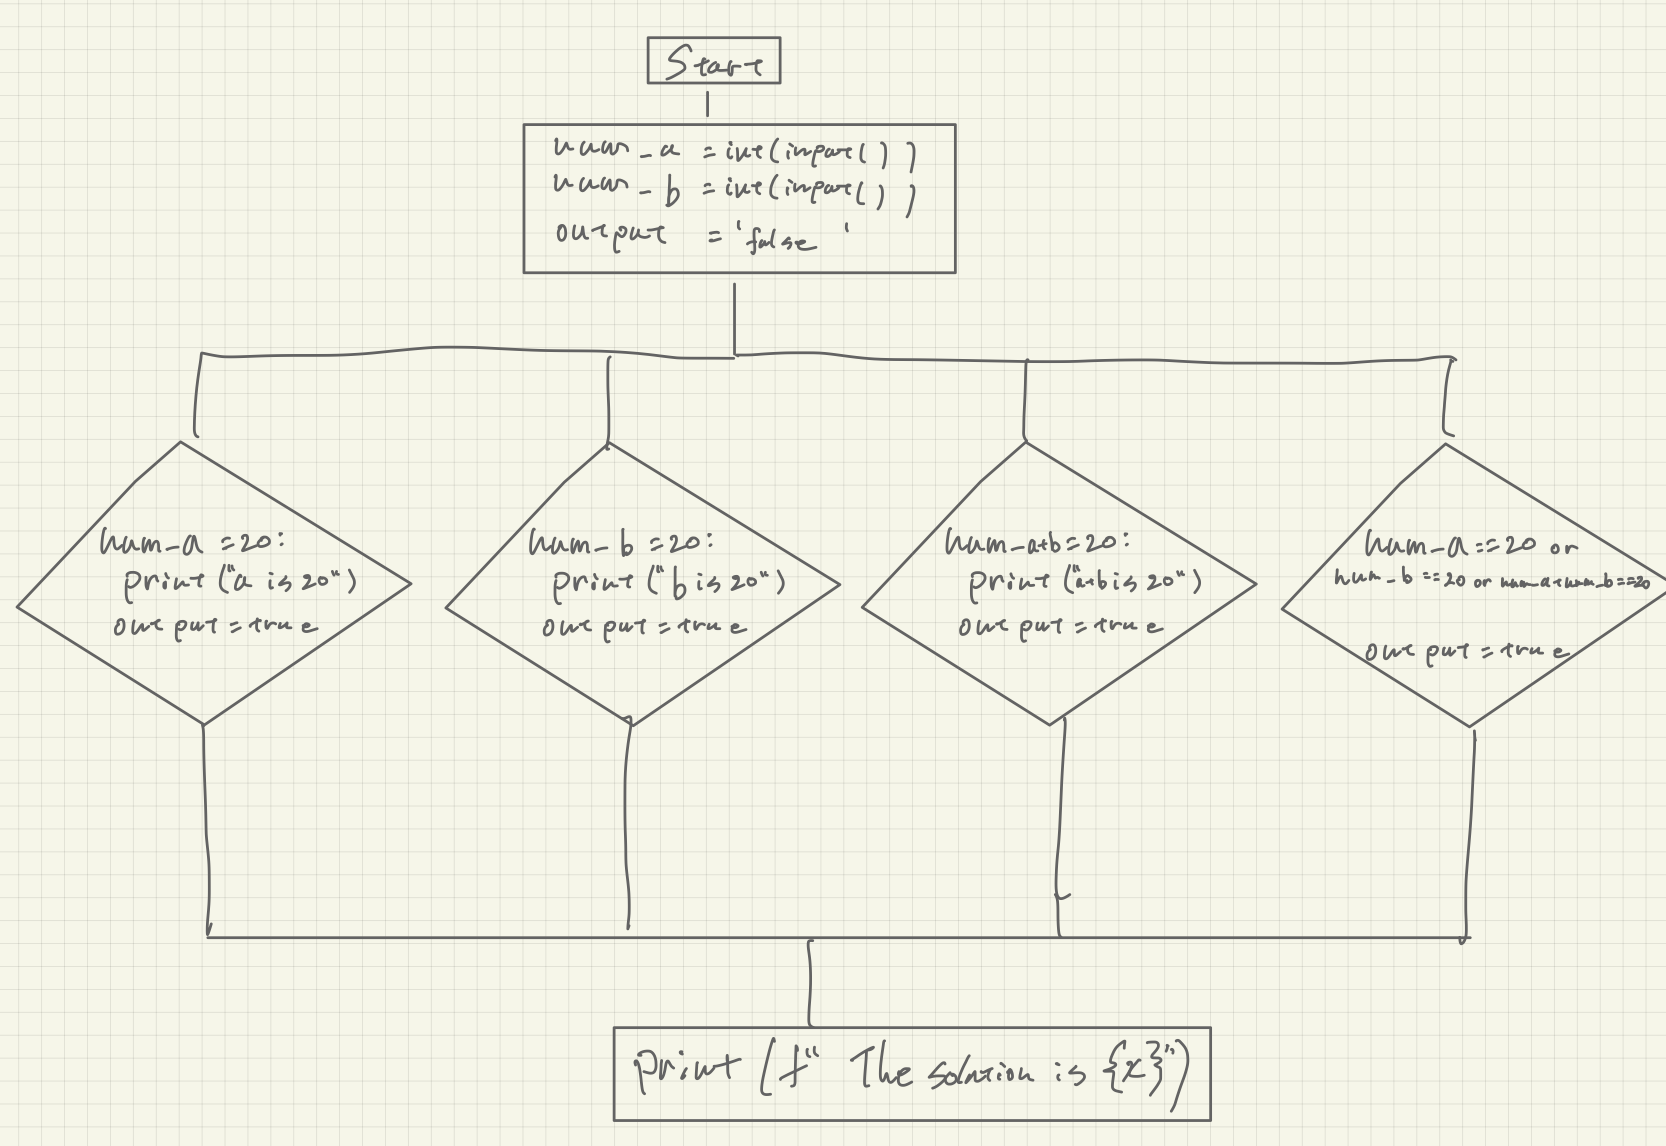 Start
num_a = int(input())
num_b = int(input())
output = 'false'
num_a =20:
print ("a is 20")
output = true
num_b =20:
print ("b is 20")
output = true
num_a+b=20:
print ("a+b is 20")
output = true
num_a==20 or
num_b ==20 or num_a+num_b==20
output = true
print (f" The solution is {x}")